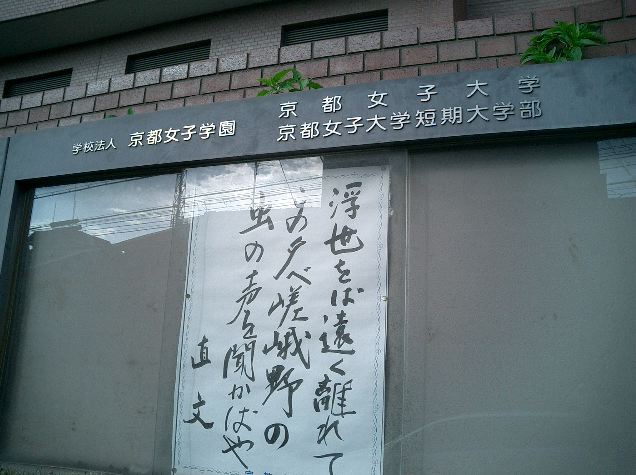 学校法人 京都女子学園
京都女子大学
京都女子大学短期大学部
浮世をば遠く離れて
この夕べ嵯峨野の
虫の声を聞かばや
直文